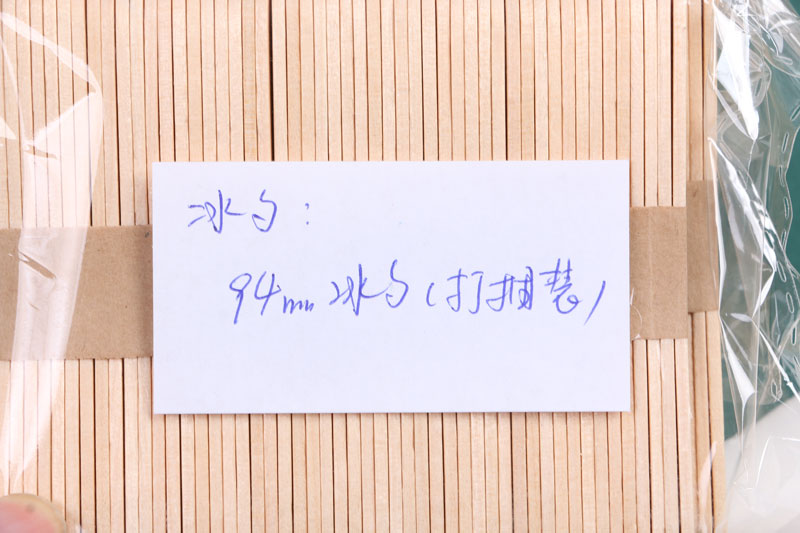 冰勺：
94mm冰勺（打捆装）